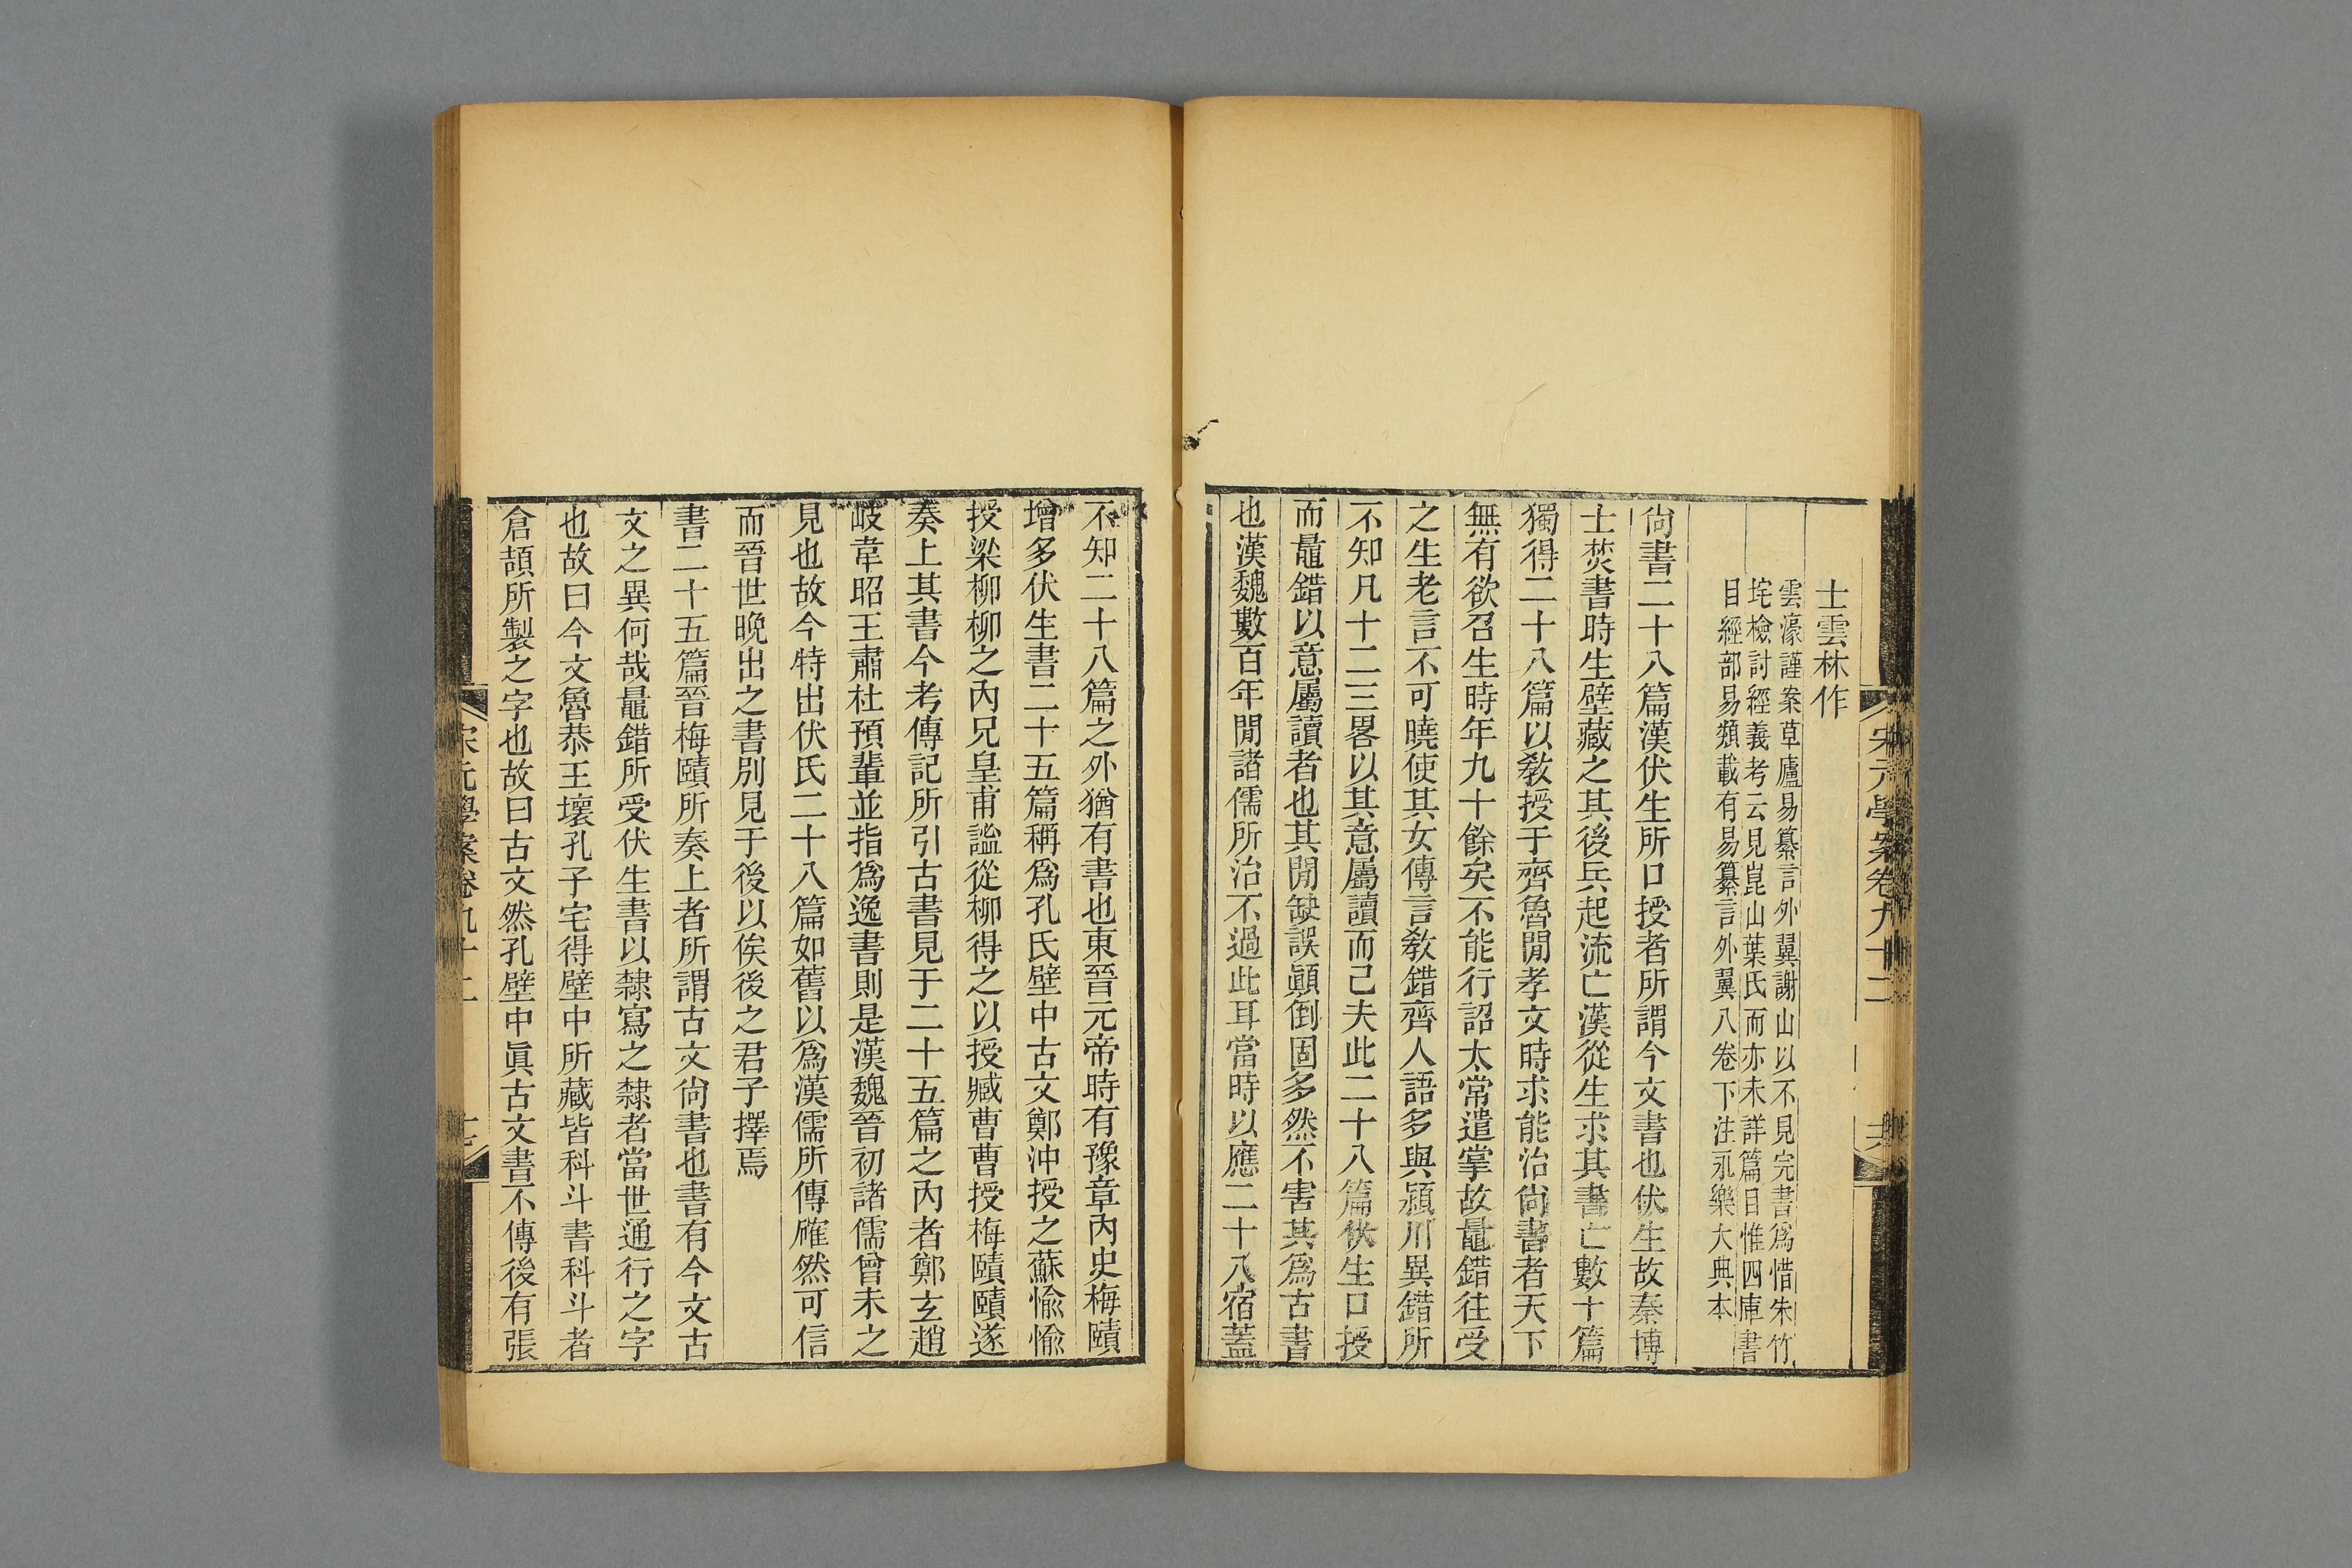 士雲林作
雲濠謹案草廬易纂言外翼謝山以不見完書爲惜朱竹
垞檢討經義考云見崑山葉氏而亦未詳篇目惟四庫書
目經部易類載有易纂言外翼八卷下注永樂大典本
尙書二十八篇漢伏生所口授者所謂今文書也伏生故秦博
士焚書時生壁藏之其後兵起流亡漢從生求其書亡數十篇
獨得二十八篇以敎授于齊魯閒孝文時求能治尙書者天下
無有欲召生時年九十餘矣不能行詔太常遣掌故鼂錯往受
之生老言不可曉使其女傳言敎錯齊人語多與潁川異錯所
不知凡十二三畧以其意屬讀而已夫此二十八篇伏生口授
而鼂錯以意屬讀者也其閒缺誤顚倒固多然不害其爲古書
也漢魏數百年閒諸儒所治不過此耳當時以應二十八宿蓋
宋元學案卷九十二
不知二十八篇之外猶有書也東晉元帝時有豫章內史梅賾
增多伏生書二十五篇稱爲孔氏壁中古文鄭沖授之蘇愉愉
授梁柳柳之內兄皇甫謐從柳得之以授臧曹曹授梅賾賾遂
奏上其書今考傳記所引古書見于二十五篇之內者鄭玄趙
岐韋昭王肅杜預輩並指爲逸書則是漢魏晉初諸儒曾未之
見也故今特出伏氏二十八篇如舊以爲漢儒所傳確然可信
而晉世晚出之書別見于後以俟後之君子擇焉
書二十五篇晉梅賾所奏上者所謂古文尙書也書有今文古
文之異何哉鼂錯所受伏生書以隸寫之隸者當世通行之字
也故曰今文魯恭王壞孔子宅得壁中所藏皆科斗書科斗者
倉頡所製之字也故曰古文然孔壁中眞古文書不傳後有張
宋元學案卷九十二